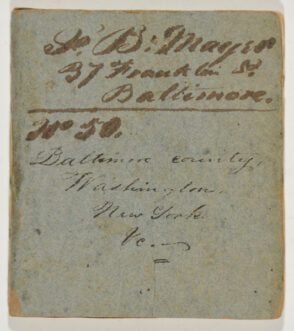 F. B. Mayer
37 Franklin St.
Baltimore.
No 50.
Baltimore county,
Washington.
New York.
&c.